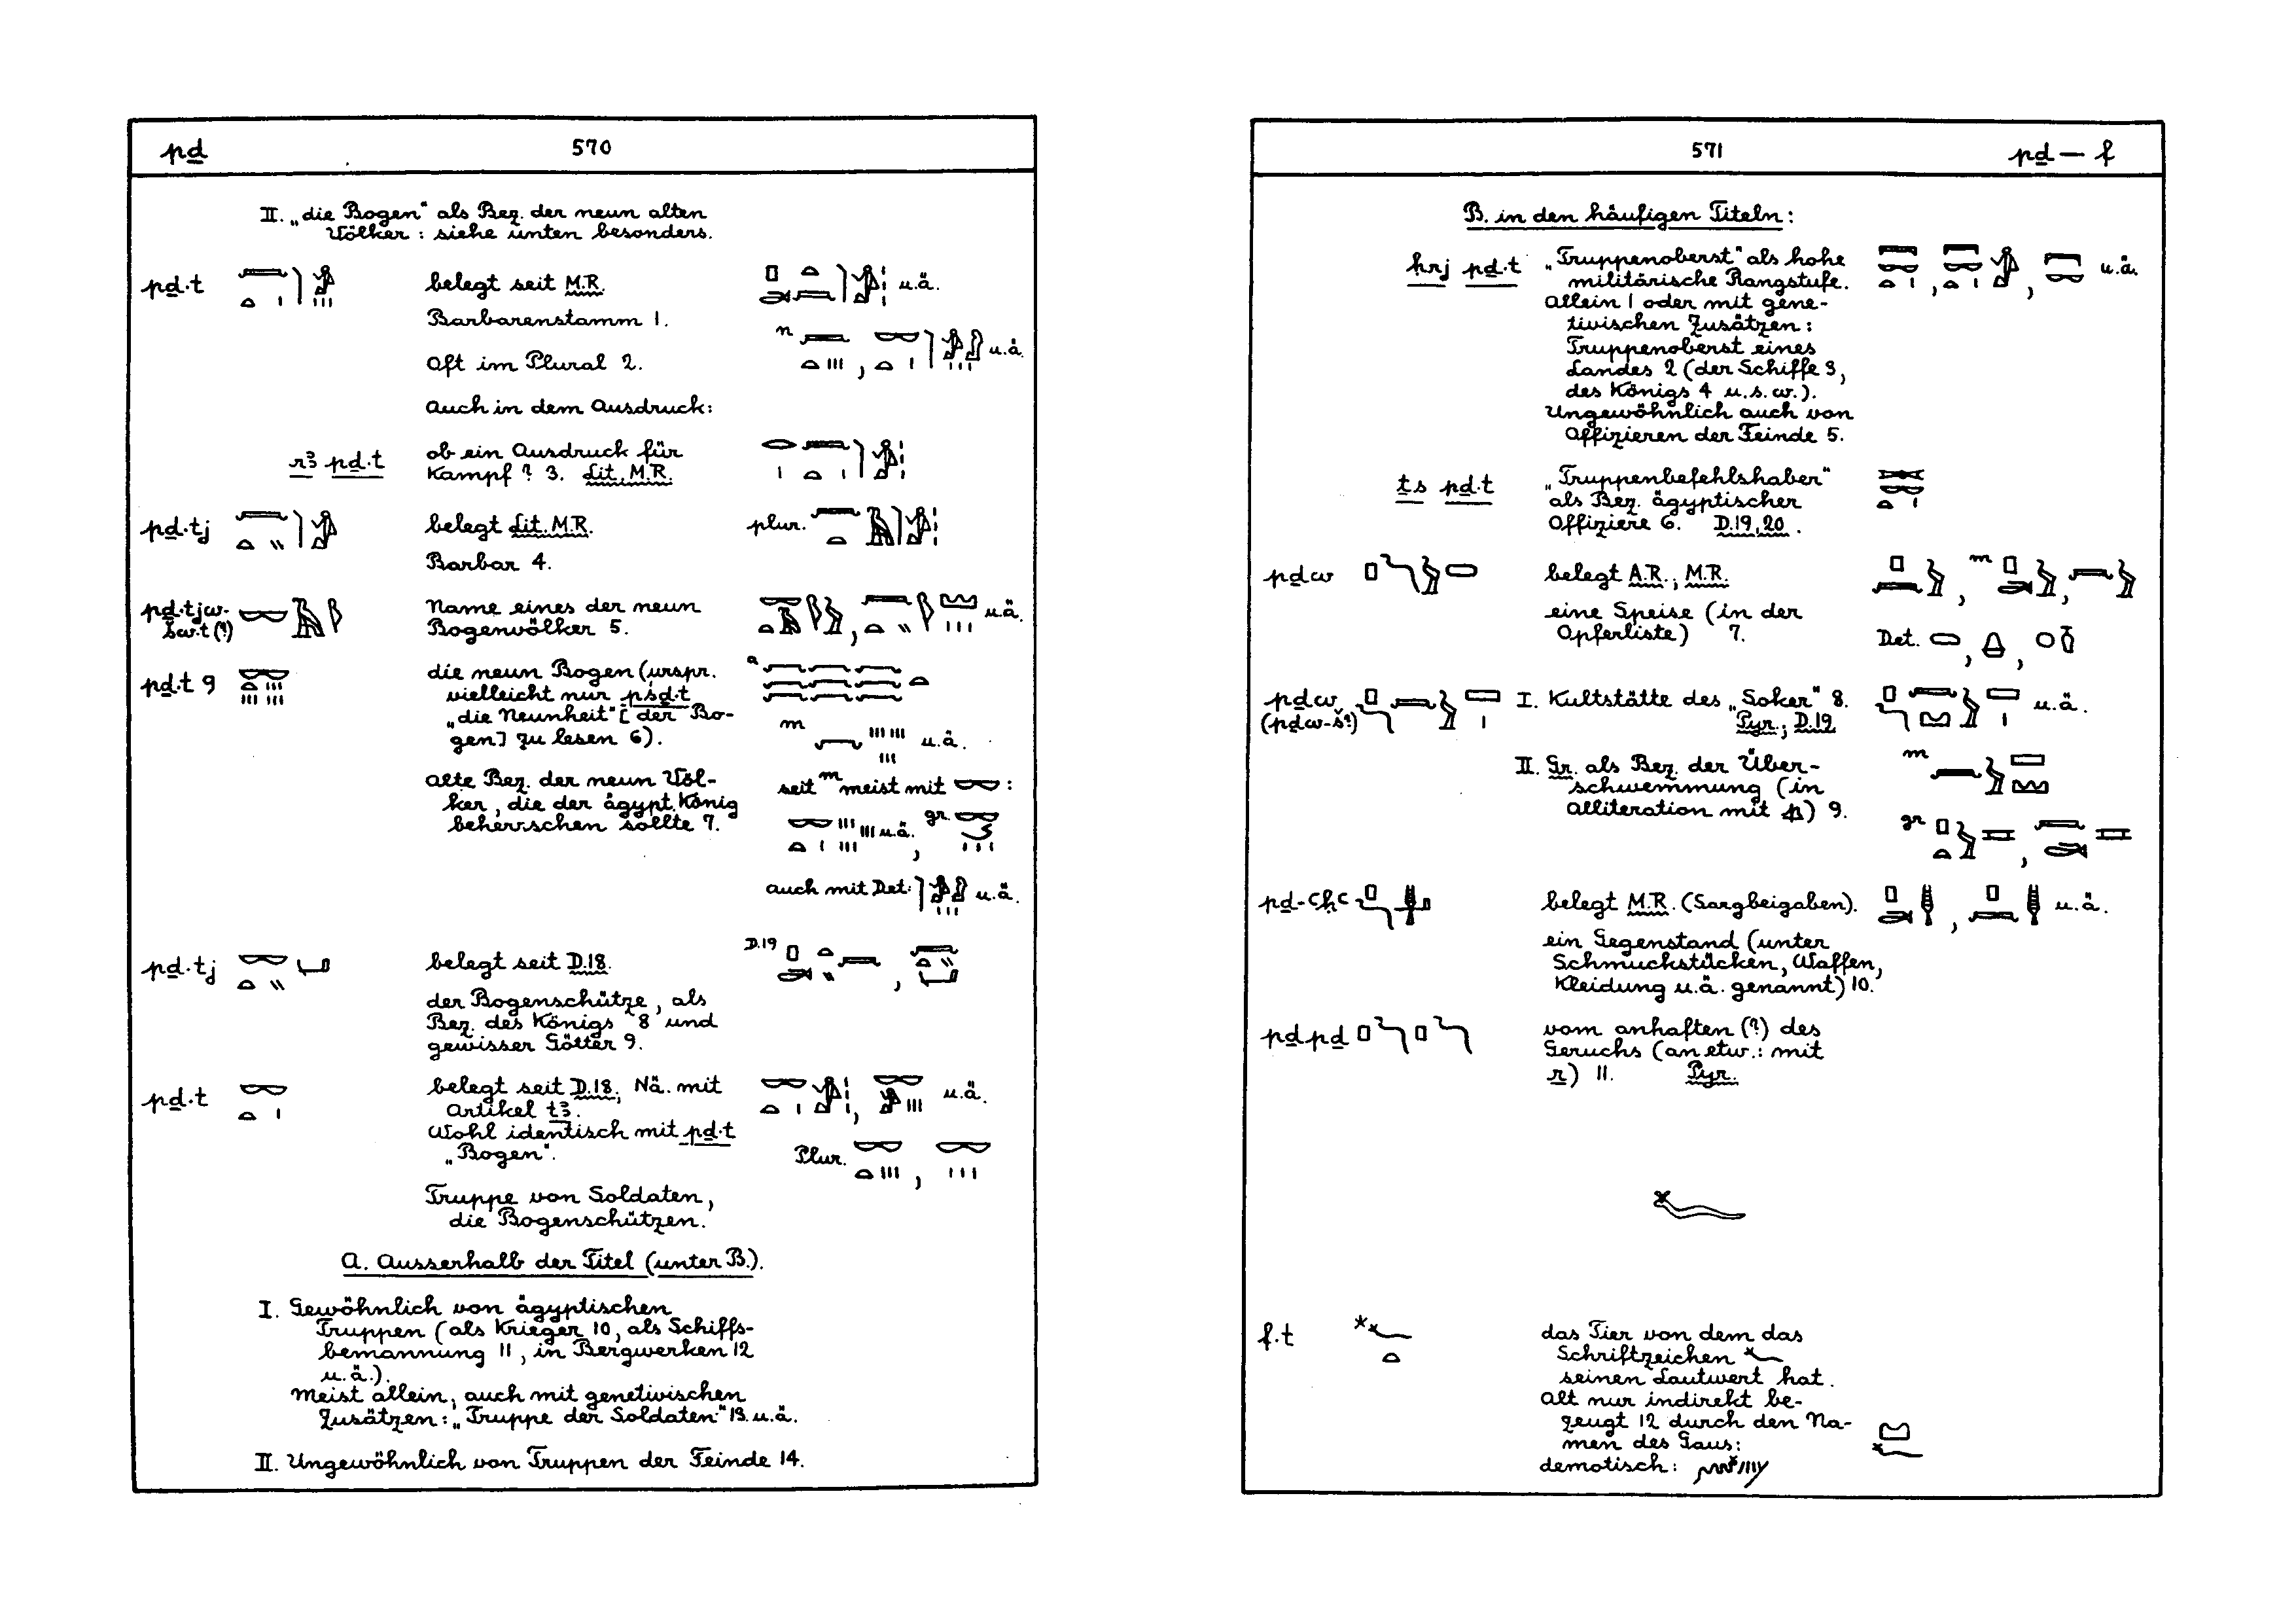 pḏ 570
II. „die Bogen“ als Bez. der neun alten
Völker : siehe unten besonders.
pḏ·t belegt seit M.R. u.ä.
Barbarenstamm 1.
Oft im Plural 2. n , u.ä.
Auch in dem Ausdruck:
rꜣ pḏ·t ob ein Ausdruck für
Kampf? 3. Lit. M.R.
pḏ·tj belegt Lit. M.R. plur.
Barbar 4.
pḏ·tjw- Name eines der neun , u.ä.
św·t (?) Bogenvölker 5.
pḏ·t 9 die neun Bogen (urspr. a
vielleicht nur pśḏ·t
„die Neunheit“ [der Bo- m
gen] zu lesen 6). u.ä.
alte Bez. der neun Völ- seit m meist mit :
ker, die der ägypt. König
beherrschen sollte 7. u.ä. , gr.
auch mit Det. u.ä.
pḏ·tj belegt seit D.18. D.19 ,
der Bogenschütze, als
Bez. des Königs 8 und
gewisser Götter 9.
pḏ·t belegt seit D.18, Nä. mit , u.ä.
Artikel tꜣ.
Wohl identisch mit pḏ·t
„Bogen“. Plur. ,
Truppe von Soldaten,
die Bogenschützen.
A. Ausserhalb der Titel (unter B.).
I. Gewöhnlich von ägyptischen
Truppen (als Krieger 10, als Schiffs-
bemannung 11, in Bergwerken 12
u.ä.).
Meist allein, auch mit genetivischen
Zusätzen: „Truppe der Soldaten“ 13. u.ä.
II. Ungewöhnlich von Truppen der Feinde 14.
571 pḏ — f
B. in den häufigen Titeln:
ḥrj pḏ·t „Truppenoberst“ als hohe
militärische Rangstufe. , , u.ä.
Allein 1 oder mit gene-
tivischen Zusätzen:
Truppenoberst eines
Landes 2 (der Schiffe 3,
des Königs 4 u.s.w.).
Ungewöhnlich auch von
Offizieren der Feinde 5.
ṯs pḏ·t „Truppenbefehlshaber“
als Bez. ägyptischer
Offiziere 6. D.19,20.
pḏw belegt A.R.; M.R. , m ,
eine Speise (in der
Opferliste) 7. Det. , ,
pḏw I. Kultstätte des „Soker“ 8. u.ä.
(pḏw-š?) Pyr.; D.19
II. Gr. als Bez. der Über- m
schwemmung (in
Alliteration mit p) 9. gr ,
pḏ-ꜥḥꜥ belegt M.R. (Sargbeigaben). , u.ä.
ein Gegenstand (unter
Schmuckstücken, Waffen,
Kleidung u.ä. genannt) 10.
pḏpḏ vom anhaften (?) des
Geruchs (an etw.: mit
r) 11. Pyr.
f·t das Tier von dem das
Schriftzeichen
seinen Lautwert hat.
Alt nur indirekt be-
zeugt 12 durch den Na-
men des Gaus:
demotisch: